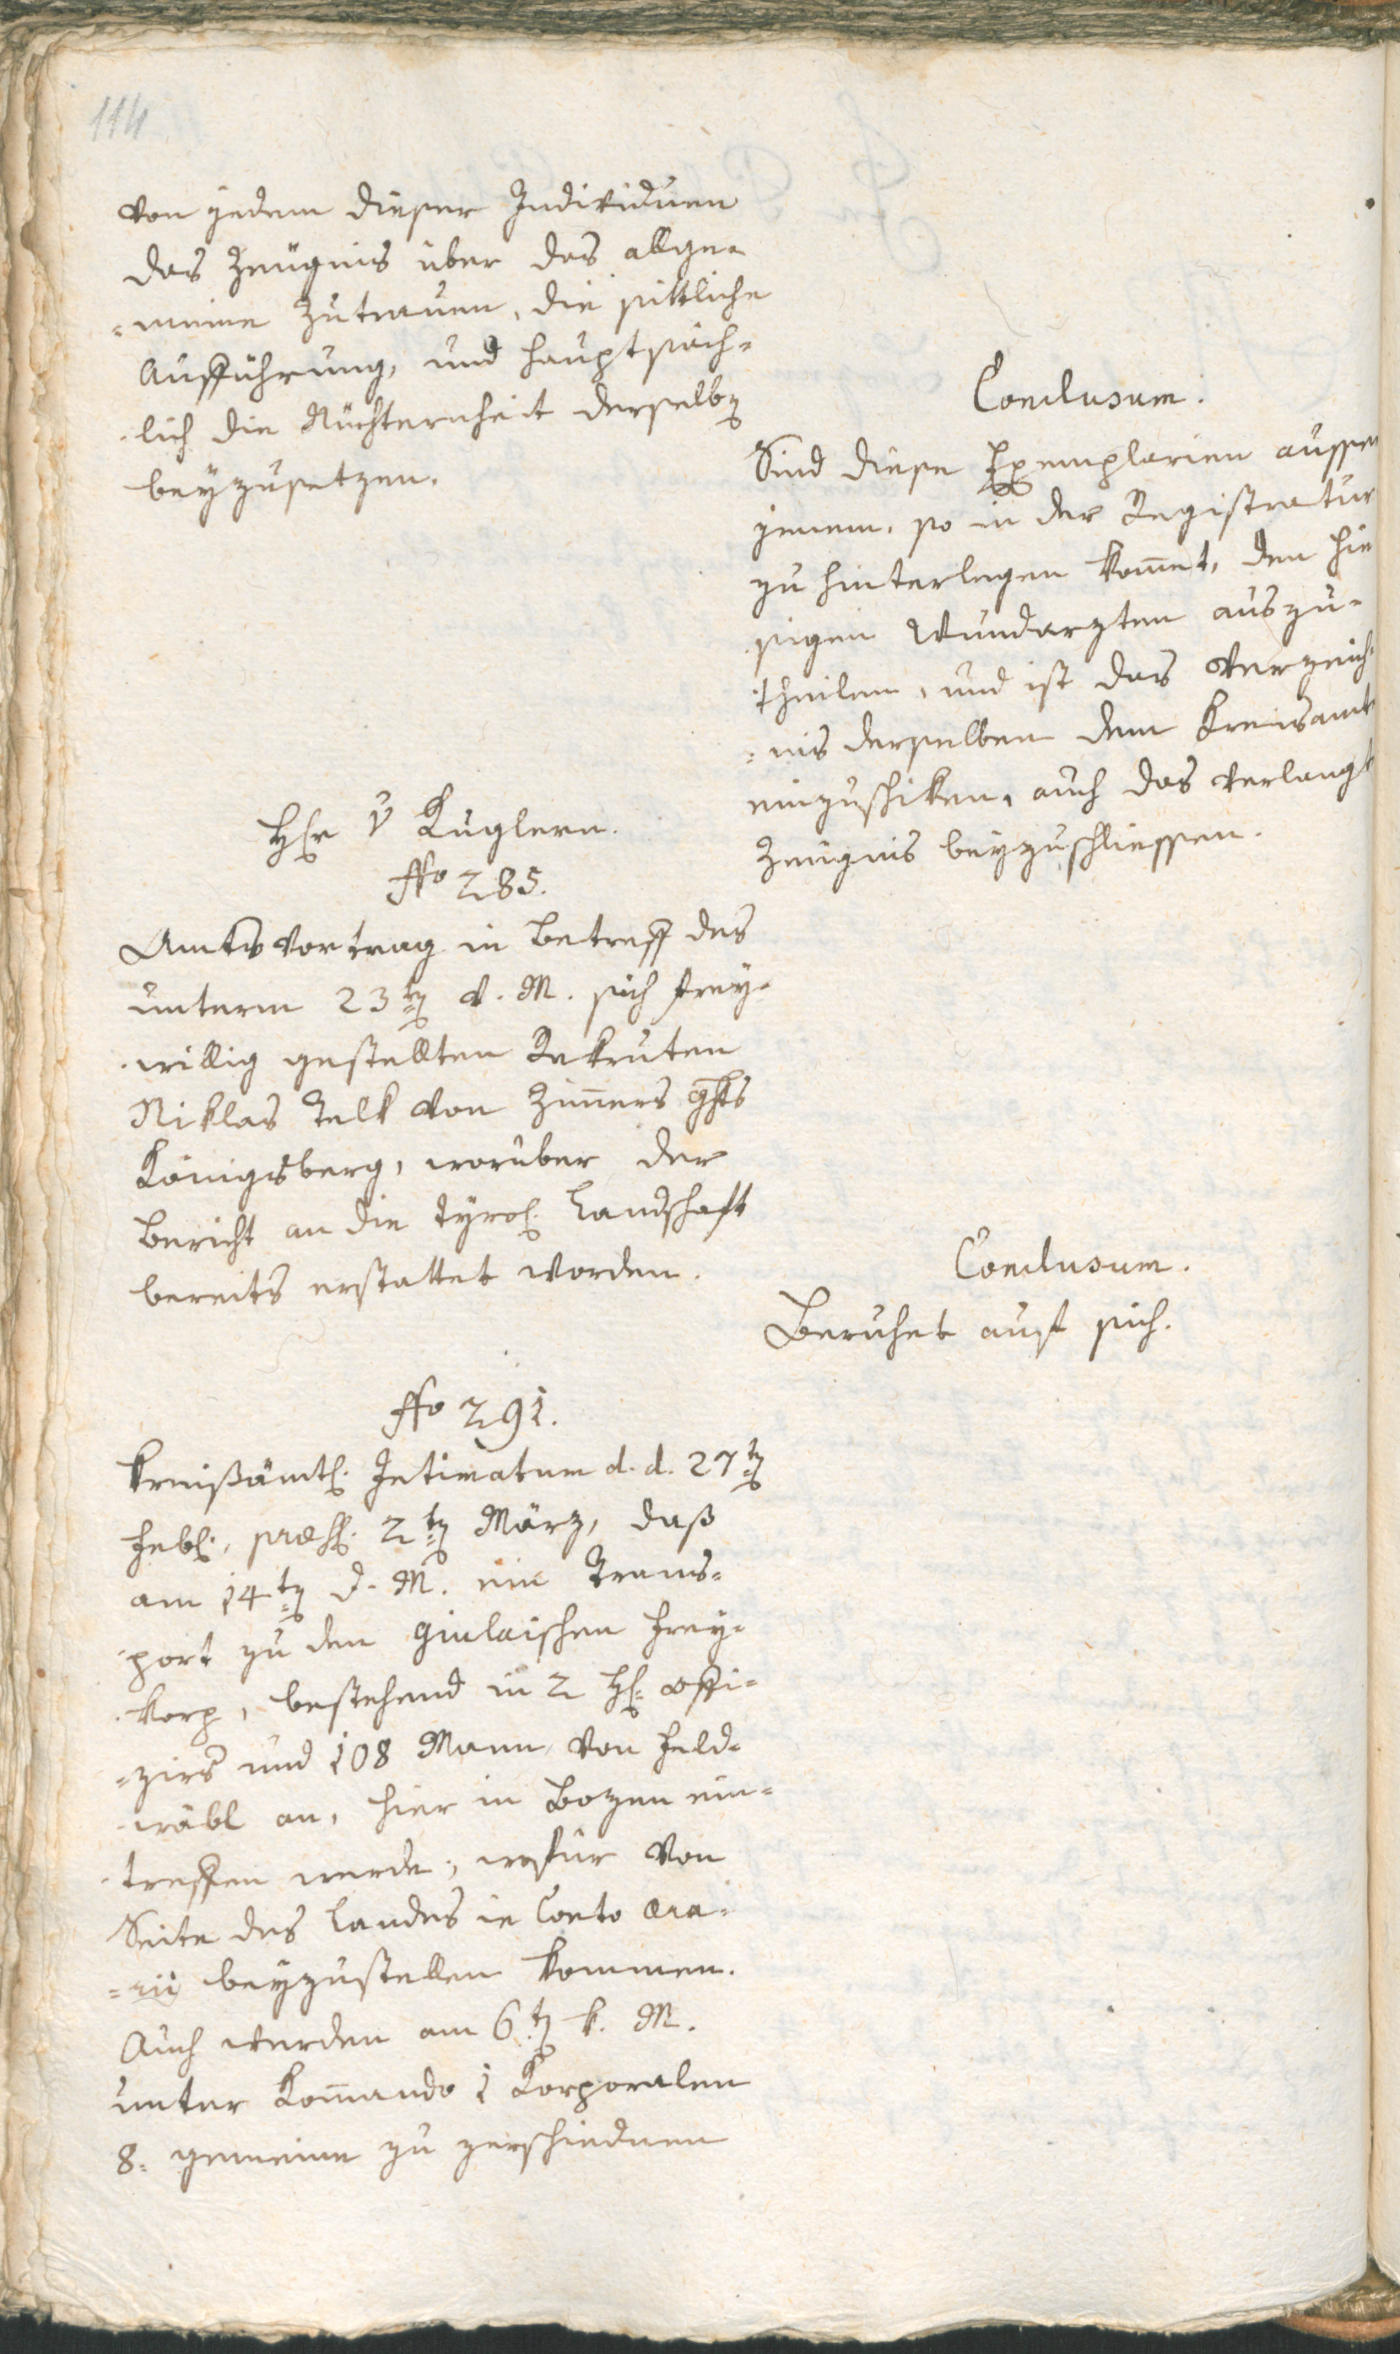 114
von jedem dieser Individuen
das Zeugnis über das allge-
-meine Zutrauen, die sittliche
Aufführung, und hauptsäch-
-lich die Nüchternheit derselben
beyzusetzen.
Conclusum.
Sind diese Exemplarien ausser
jenem, so in der Registratur
zu hinterlegen kom̅et, den hie
-sigen Wundarzten auszu-
-theilen, und ist das Verzeich-
-nis derselben dem Kreisamte
einzuschiken, auch das verlangt
Zeugnis beyzuschliessen.
Hr v Kuglern.
No 285.
Amtsvortrag in Betreff des
unterm 23ten v. M. sich frey-
-willig gestellten Rekruten
Niklas Telk von Zim̅ers Ghts
Königsberg, worüber der
Bericht an die tyrol. Landschaft
bereits erstattet worden.
Conclusum.
Beruhet auf sich.
No 291.
Kreißämtl. Intimatum d. d. 27ten
Febr., præs. 2ten März, daß
am 14ten d. M. ein Trans-
-port zu dem Giulaischen Frey-
-korp, bestehend in 2 H. Offi-
-zirs und 108 Mann von Feld-
-wäbl an, hier in Bozen ein-
-treffen werde, wofür von
Seite des Landes in Conto æra-
-rii beyzustellen kommen.
Auch werden am 6ten k. M.
unter Kom̅ando 1 Korporalen
8. gemeine zu zerschiednen